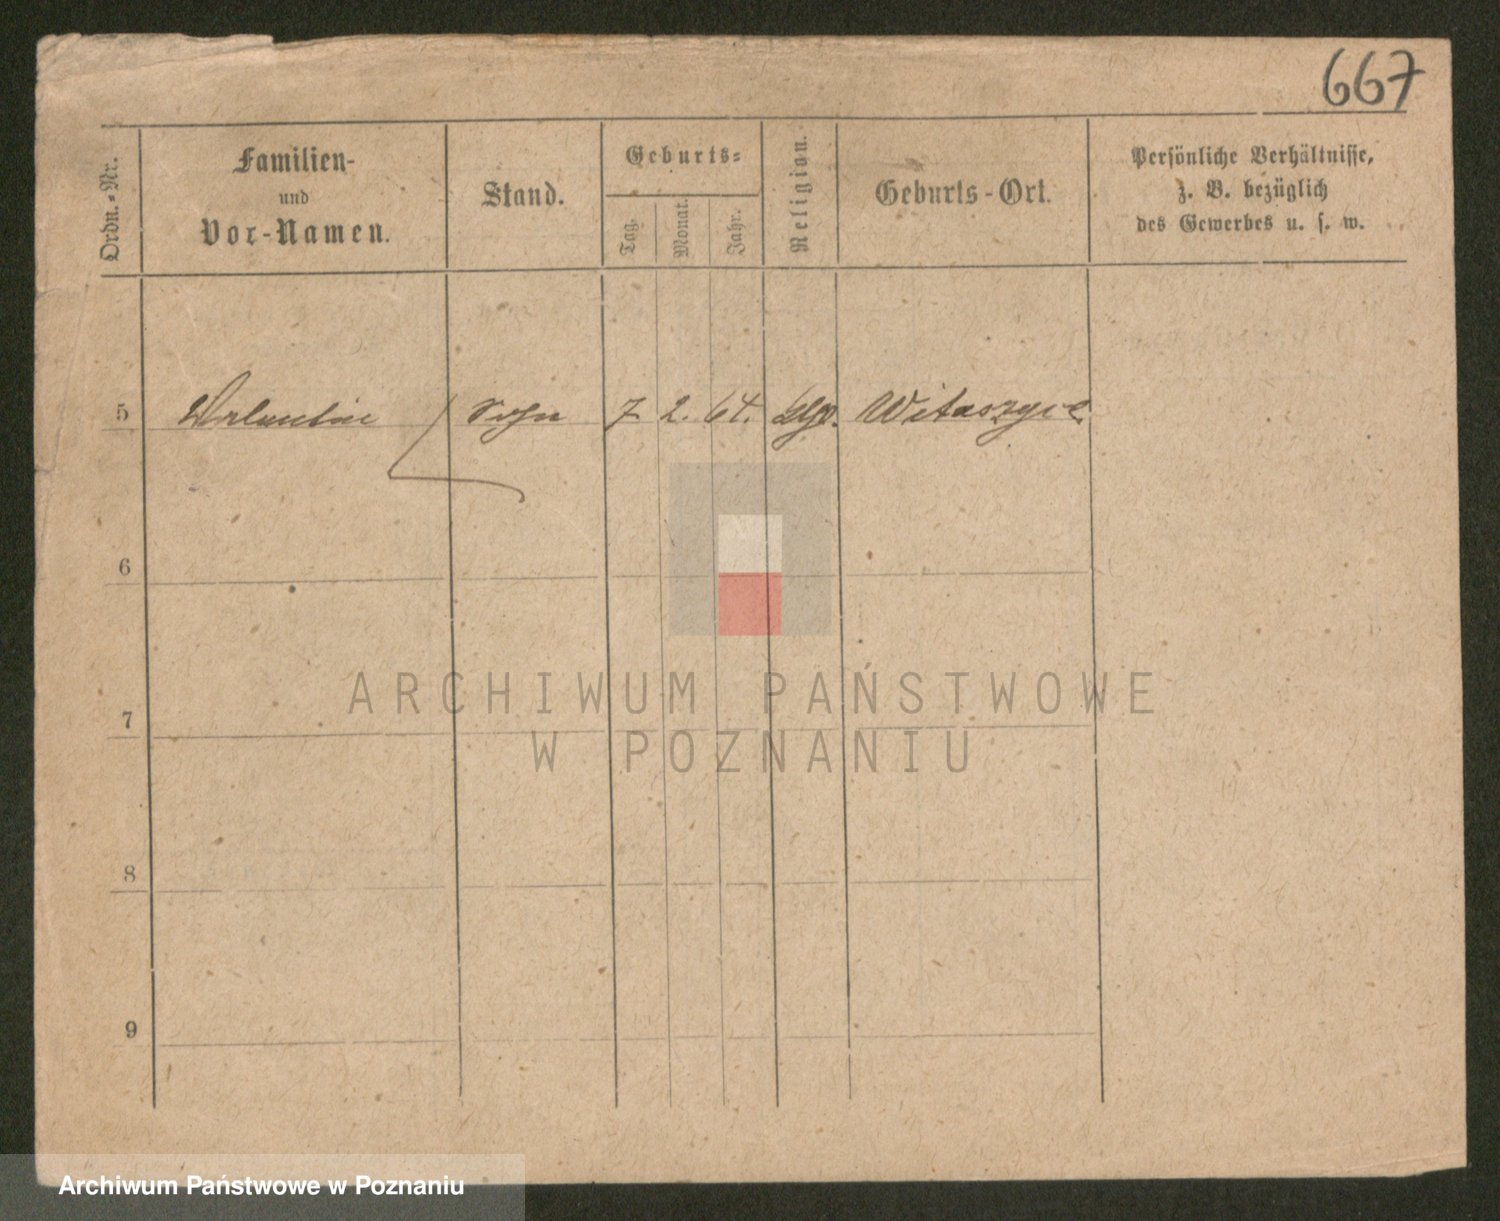 667
Ordn.-Nr.
Familien-
und
Vor-Namen.
Stand.
Geburts-
Tag.
Monat.
Jahr.
Religion.
Geburts-Ort.
Persönliche Verhältnisse,
z. B. bezüglich
des Gewerbes u. s. w.
5 Valentin Sohn 7 2. 64. Witaszyce
6
7
8
9
ARCHIWUM PAŃSTWOWE
W POZNANIU
Archiwum Państwowe w Poznaniu